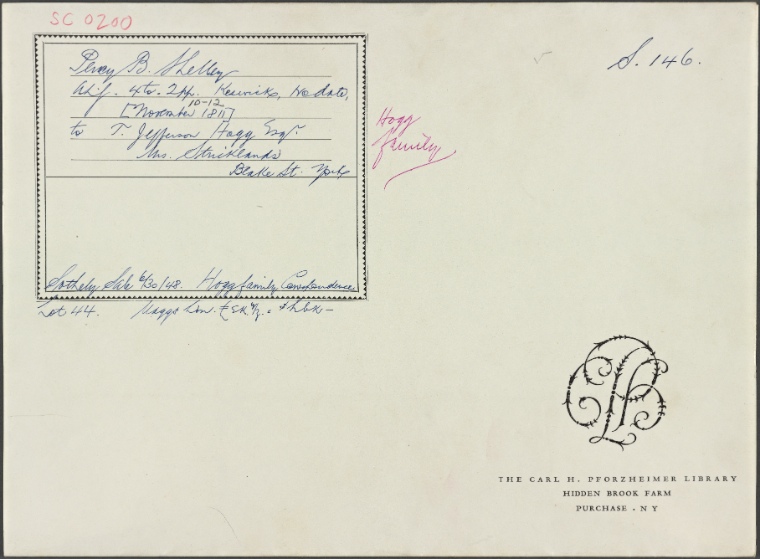 SC 0200
S. 146.
Percy B. Shelley
4to. 2pp. Keswick, No date,
10-12
[November 1811]
to T. Jefferson Hogg Esqr.
Mrs. Stricklands
Blake St. York
Hogg
family
Sotheby Sale 6/30/48. Hogg family Correspondence
Lot 44. Maggs
THE CARL H. PFORZHEIMER LIBRARY
HIDDEN BROOK FARM
PURCHASE . N Y